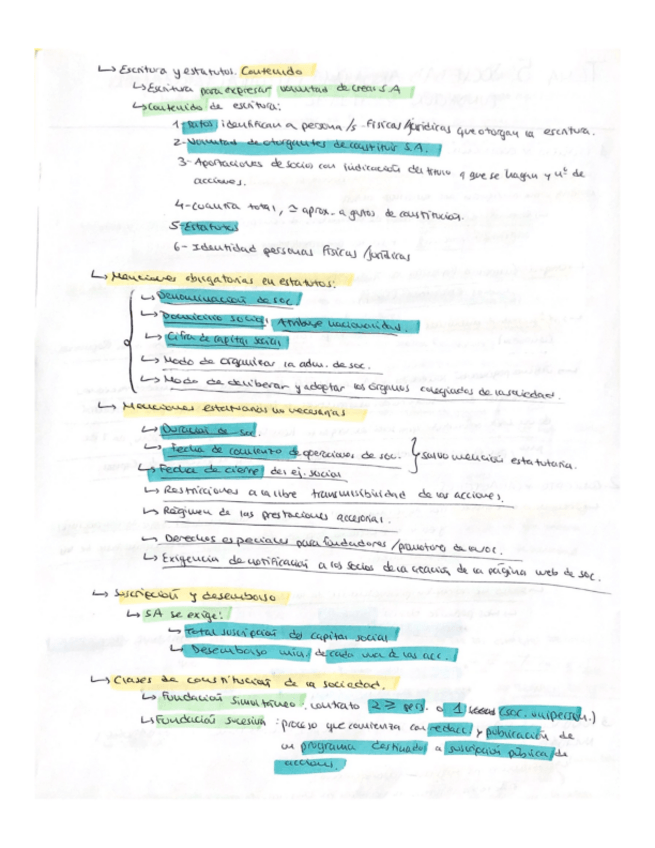 ↳ Escritura y estatutos. Contenido
↳ Escritura para expresar voluntad de crear S.A
↳ Contenido de escritura:
1- Datos identifican a persona/s físicas/jurídicas que otorgan la escritura.
2- Voluntad de otorgantes de constituir S.A.
3- Aportaciones de socio con indicación del título q que se hagan y nº de
acciones.
4- Cuantía total, ≃ aprox. a gastos de constitución.
5- Estatutos
6- Identidad personas físicas/jurídicas
↳ Menciones obligatorias en estatutos:
↳ Denominación de soc.
↳ Domicilio social: Atribuye nacionalidad.
↳ Cifra de capital social
↳ Modo de organizar la adm. de soc.
↳ Modo de deliberar y adoptar los órganos colegiados de la sociedad.
↳ Menciones estatutarias no necesarias
↳ Duración de soc.
↳ Fecha de comienzo de operaciones de soc. } salvo mención estatutaria.
↳ Fecha de cierre del ej. social
↳ Restricciones a la libre transmisibilidad de las acciones.
↳ Régimen de las prestaciones accesorias.
↳ Derechos especiales para fundadores/promotores de la soc.
↳ Exigencia de notificación a los socios de la creación de la página web de soc.
↳ Suscripción y desembolso
↳ SA se exige:
↳ Total suscripción del capital social
↳ Desembolso mín. de cada una de las acc.
↳ Clases de constitución de la sociedad.
↳ Fundación simultánea: contrato 2 ≥ pers. o 1 (soc. uniperson.)
↳ Fundación sucesiva: proceso que comienza con redacc. y publicación de
un programa destinado a suscripción pública de
acciones.